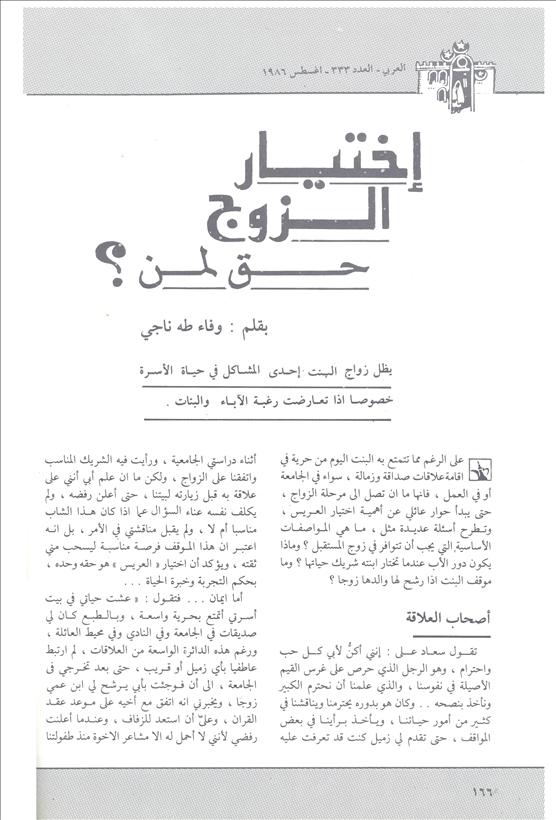 العربي - العدد ٣٣٣ - اغسطس ١٩٨٦
إختيار
الزوج
حق لمن ؟
بقلم : وفاء طه ناجي
يظل زواج البنت إحدى المشاكل في حياة الأسرة
خصوصا اذا تعارضت رغبة الآباء والبنات .
على الرغم مما تتمتع به البنت اليوم من حرية في
اقامة علاقات صداقة وزمالة ، سواء في الجامعة
أو في العمل ، فانها ما ان تصل الى مرحلة الزواج ،
حتى يبدأ حوار عائلي عن أهمية اختيار العريس ،
وتطرح أسئلة عديدة مثل ، ما هي المواصفات
الأساسية التي يجب أن تتوافر في زوج المستقبل ؟ وماذا
يكون دور الأب عندما تختار ابنته شريك حياتها ؟ وما
موقف البنت اذا رشح لها والدها زوجا ؟
أصحاب العلاقة
تقول سعاد علي : إنني أكنُّ لأبي كل حب
واحترام ، وهو الرجل الذي حرص على غرس القيم
الأصيلة في نفوسنا ، والذي علمنا أن نحترم الكبير
ونأخذ بنصحه .. وكان هو بدوره يحترمنا ويناقشنا في
كثير من أمور حياتنا ، ويأخذ برأينا في بعض
المواقف ، حتى تقدم لي زميل كنت قد تعرفت عليه
أثناء دراستي الجامعية ، ورأيت فيه الشريك المناسب
واتفقنا على الزواج ، ولكن ما ان علم أبي أنني على
علاقة به قبل زيارته لبيتنا ، حتى أعلن رفضه ، ولم
يكلف نفسه عناء السؤال عما اذا كان هذا الشاب
مناسبا أم لا ، ولم يقبل مناقشتي في الأمر ، بل انه
اعتبر ان هذا الموقف فرصة مناسبة ليسحب مني
ثقته ، ويؤكد أن اختيار « العريس » هو حقه وحده ،
بحكم التجربة وخبرة الحياة ...
أما ايمان ... فتقول : « عشت حياتي في بيت
أسرتي أتمتع بحرية واسعة ، وبالطبع كان لي
صديقات في الجامعة وفي النادي وفي محيط العائلة ،
ورغم هذه الدائرة الواسعة من العلاقات ، لم ارتبط
عاطفيا بأي زميل أو قريب ، حتى بعد تخرجي فى
الجامعة ، الى أن فوجئت بأبي يرشح لي ابن عمي
زوجا ، ويخبرني انه اتفق مع أخيه على موعد عقد
القران ، وعليّ أن استعد للزفاف ، وعندما أعلنت
رفضي لأنني لا أحمل له الا مشاعر الاخوة منذ طفولتنا
١٦٦